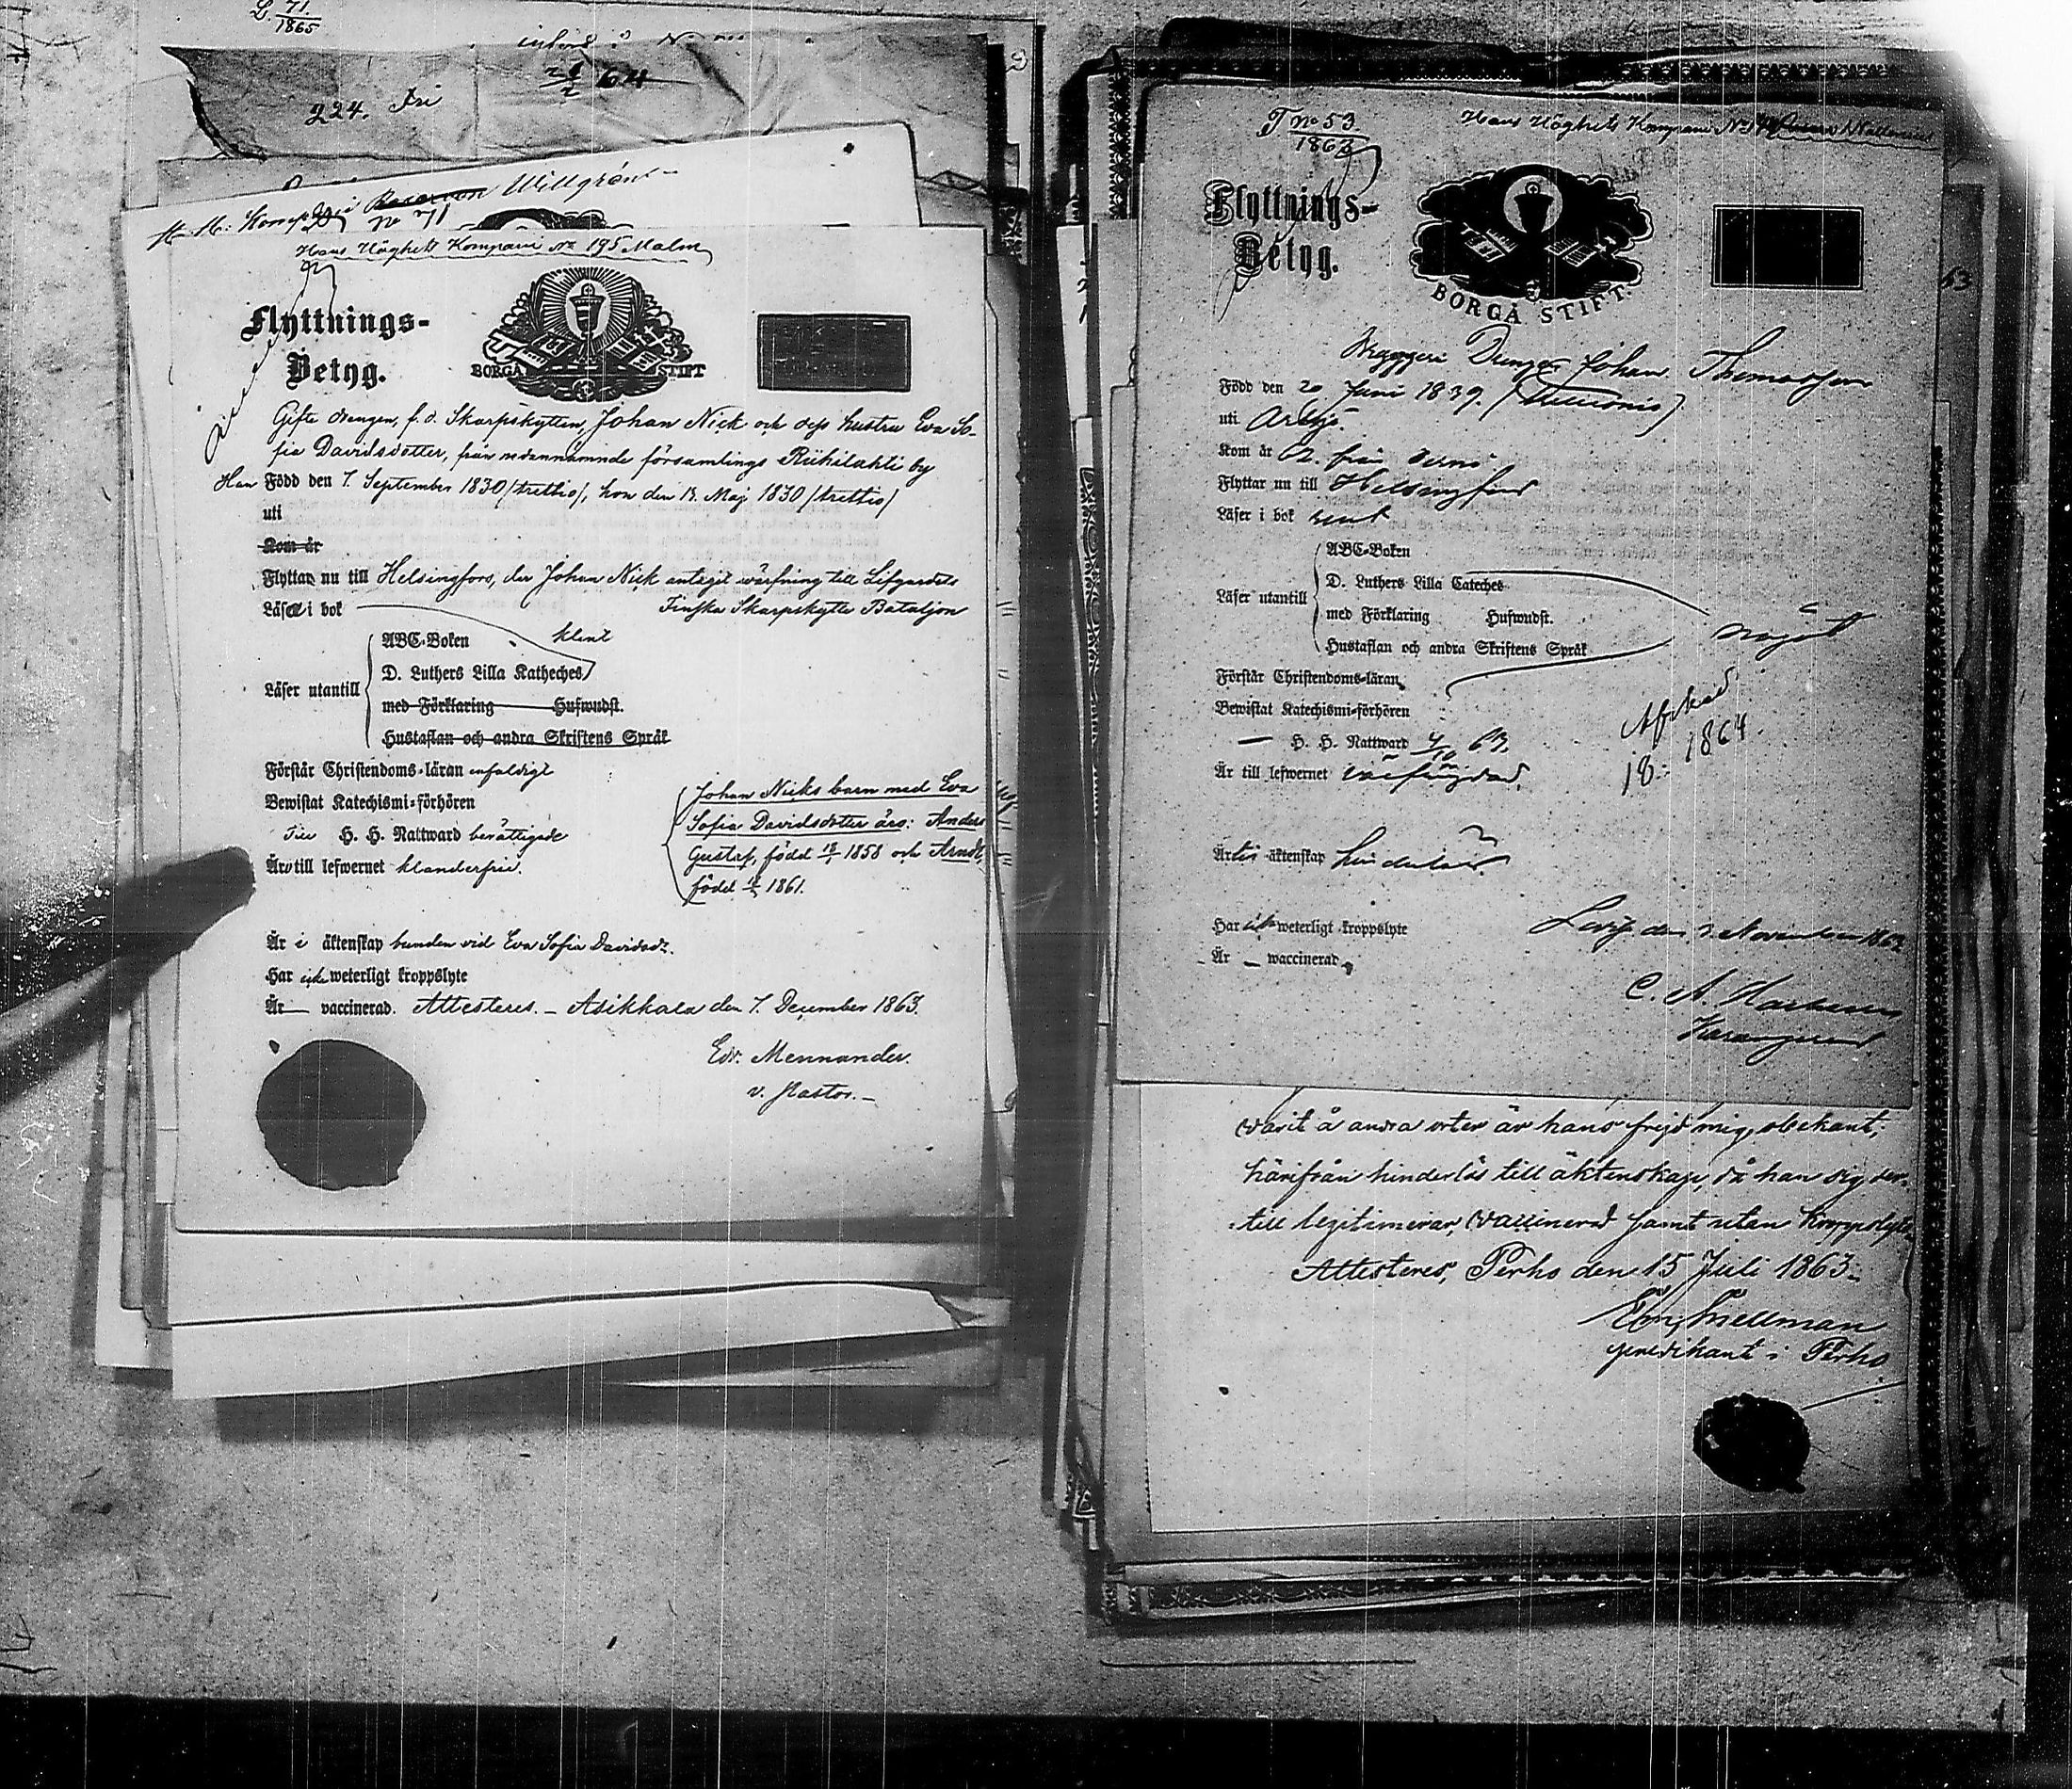 L. 71.
1865
införd
64
224. Fri
H. H. Komp. Willgrén
No 71
Hans Höghets Kompani No 195 Malm
Flyttnings-
Betyg.
BORGÅ STIFT
Gifte drengen, f. d. Skarpskytten, Johan Nick och dess hustru Eva So-
fia Davidsdotter, från nedannämnde församlings Riihilahti by
Han Född den 7. September 1830 (trettio), hon den 13. Maj 1830 (trettio)
uti
Kom år
Flyttar nu till Helsingfors, der Johan Nick antagit värfning till Lifgardets
Läsa i bok Finska Skarpskytte Bataljon
ABC-Boken klent
D. Luthers Lilla Katheches
Läser utantill
med Förklaring Hufwudst.
Hustaflan och andra Skriftens Språk
Förstår Christendoms-läran enfaldigt
Bewistat Katechismi-förhören
Till H. H. Nattward berättigade
Äro till lefwernet klanderfrie.
Johan Nicks barn med Eva
Sofia Davidsdotter äro: Anders
Gustaf, född 1858 och Arndt,
född 1861.
Är i äktenskap bunden vid Eva Sofia Davidsdr.
Har icke weterligt kroppslyte
Är — vaccinerad. Attesteres. – Asikkala den 7. December 1863.
Edv. Mennander.
v. Pastor. –
T No 53
1863
Hans Höghets Kompani No
Flyttnings-
Betyg.
BORGÅ STIFT.
Bryggeri Drengen Johan Thomasson
Född den 20 Juni 1839.
uti Artsjö.
Kom år 62. från
Flyttar nu till Helsingfors
Läser i bok rent
ABC-Boken
D. Luthers Lilla Cateches
Läser utantill
med Förklaring Hufwudst.
Hustaflan och andra Skriftens Språk
något
Förstår Christendoms-läran
Bewistat Katechismi-förhören
— H. H. Nattward 4/10 63.
Är till lefwernet
Afsked
18 1864.
Är till äktenskap hinderlös
Har icke weterligt kroppslyte
Är — waccinerad
Lovisa den 3 November 1863
C. A.
varit å andra orter är hans frejd mig obekant;
härifrån hinderlös till äktenskap, då han sig der-
till legitimerar, vaccinerad samt utan kroppslyte
Attesteres, Perho den 15 Juli 1863.
Snellman
predikant i Perho